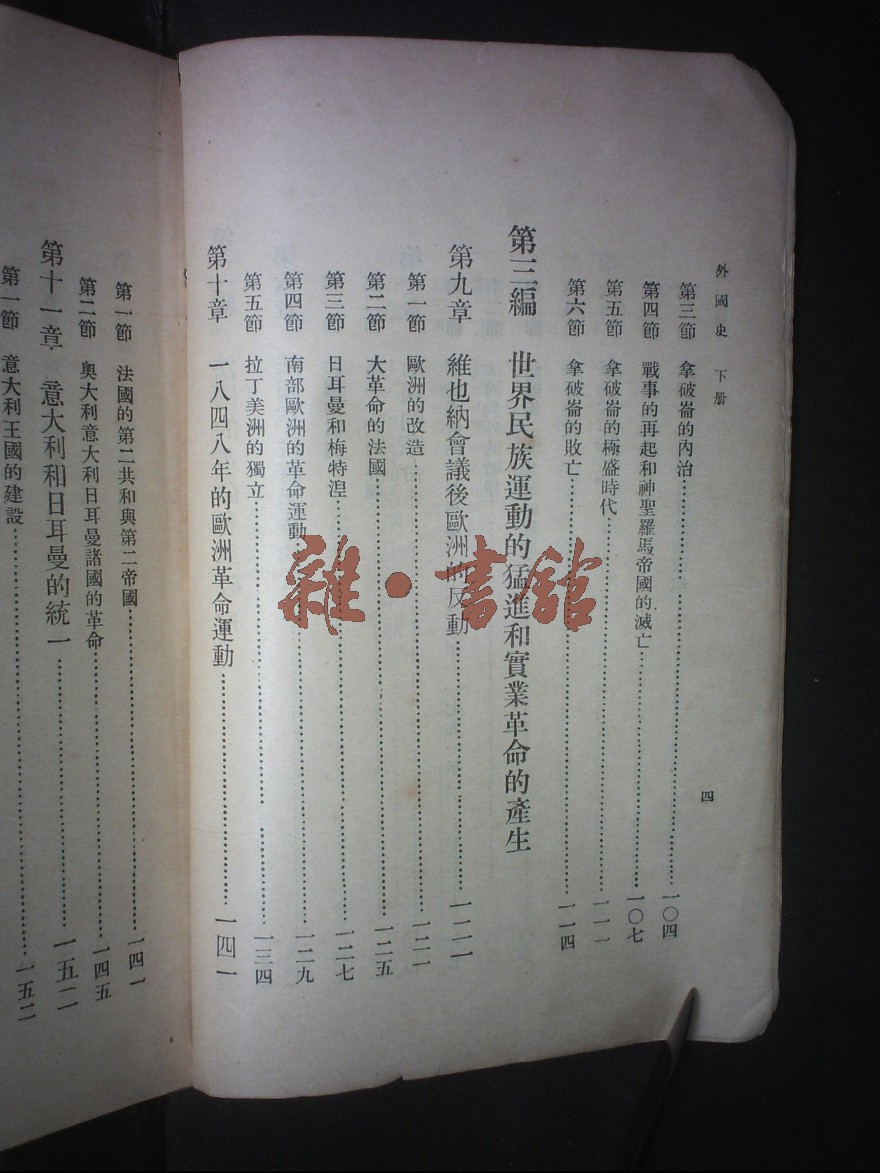 外國史 下册
四
第三節 拿破崙的內治……………一〇四
第四節 戰事的再起和神聖羅馬帝國的滅亡……………一〇七
第五節 拿破崙的極盛時代……………一一一
第六節 拿破崙的敗亡……………一一四
第三編 世界民族運動的猛進和實業革命的產生
第九章 維也納會議後歐洲的反動……………一二一
第一節 歐洲的改造……………一二一
第二節 大革命的法國……………一二五
第三節 日耳曼和梅特涅……………一二七
第四節 南部歐洲的革命運動……………一二九
第五節 拉丁美洲的獨立……………一三四
第十章 一八四八年的歐洲革命運動……………一四一
第一節 法國的第二共和與第二帝國……………一四一
第二節 奧大利意大利日耳曼諸國的革命……………一四五
第十一章 意大利和日耳曼的統一……………一五二
第一節 意大利王國的建設……………一五二
雜·書館